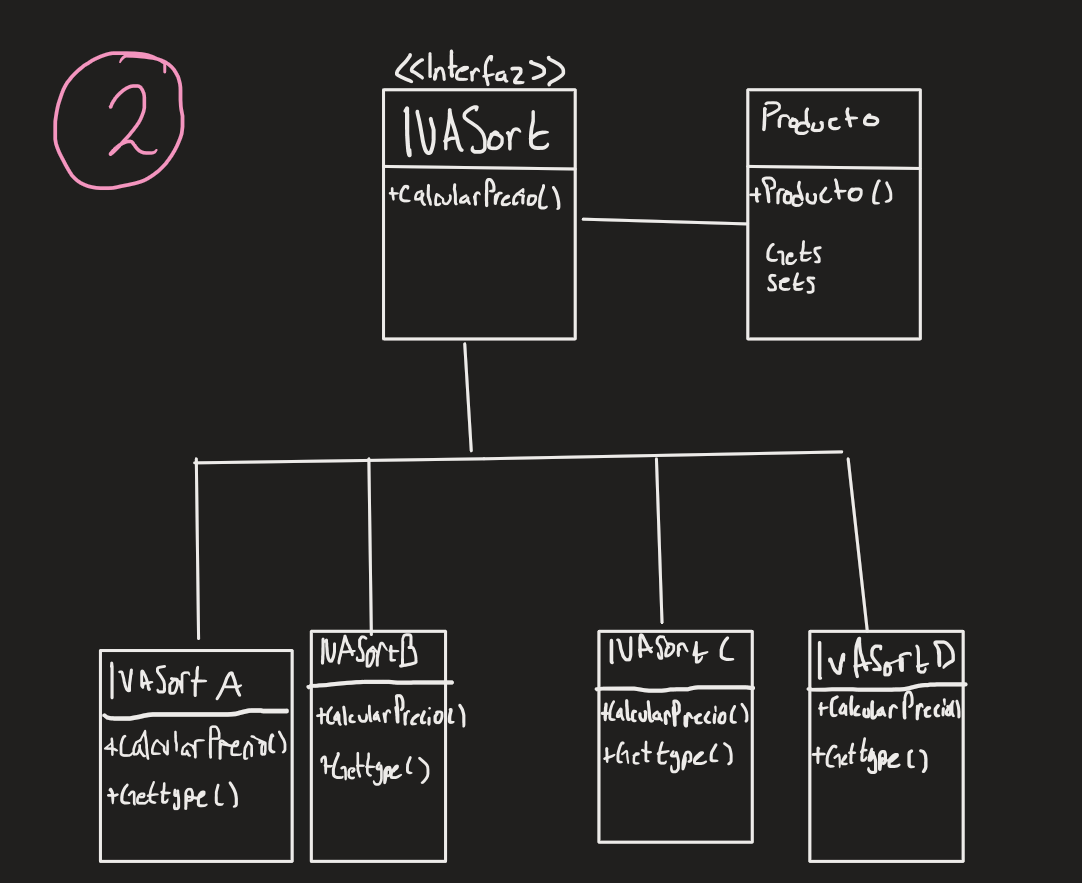 2
<<Interfaz>>
IVASort
+CalcularPrecio()
Producto
+Producto()
Gets
sets
IVASort A
+CalcularPrecio()
+Gettype()
IVASortB
+CalcularPrecio()
+Gettype()
IVASort C
+CalcularPrecio()
+Gettype()
IVASort D
+CalcularPrecio()
+Gettype()